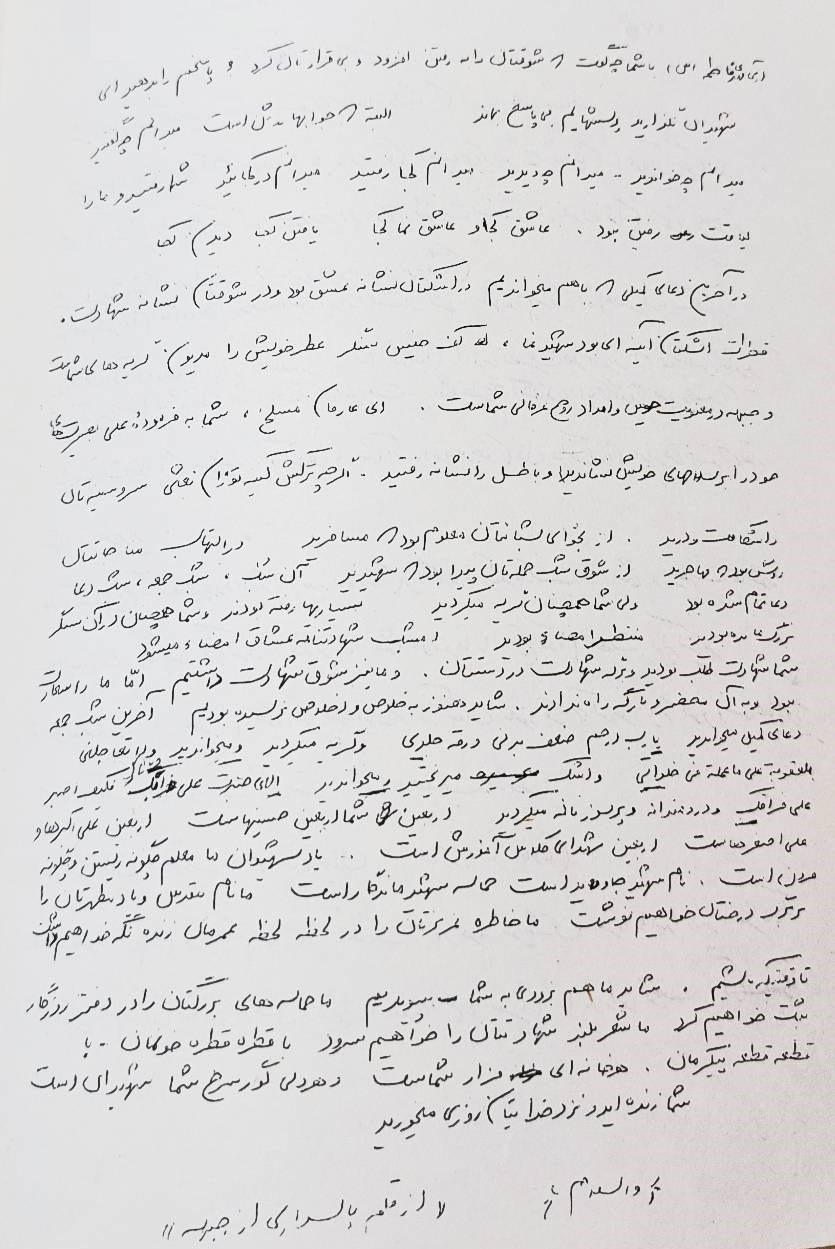 با شما چه گفت که شوقتان را به رفتن افزود و بی قرارتان کرد و پاسخم را بدهید ای
شهیدان نگذارید پرسشهایم بی پاسخ بماند البته که جوابها روشن است میدانم چه گفتید
میدانم چه خواندید .. میدانم چه دیدید میدانم کجا رفتید میدانم در کجائید شما رفتید و ما را
لیاقت رفتن نبود . عاشق کجا و عاشق نما کجا یافتن کجا دیدن کجا
در آخرین دعای کمیلی که با هم میخواندیم در اشکتان نشانه عشق بود و در شوقتان نشانه شهادت .
قطرات اشکتان آینه ای بود شهید نما ، کف خیس سنگر عطر خویش را مدیون گریه های شماست
و جبهه در معنویت وامدار روح عرفانی شماست . ای عارفان مسلح ، شما به فرموده علی بصیرتهای
خود را بر سلاحهای خویش نشاندید و باطل را نشانه رفتید . اگر چه ترکش کینه توزان نقشی سر و سینه تان
را شکافت و درید . از نجوای شبانتان معلوم بود که مسافرید در التهاب مناجاتتان
روشن بود که مهاجرید از شوق شب حمله تان پیدا بود که شهیدید آن شب ، شب جمعه ، شب دعا
دعا تمام شده بود ولی شما همچنان گریه میکردید بسیاریها رفته بودند و شما همچنان در آن سنگر
بزرگ مانده بودید منتظر امضاء بودید امشب شهادتنامه عشاق امضاء میشود
شما شهادت طلب بودید و برگه شهادت در دستتان . و ما نیز شوق شهادت داشتیم امّا ما را سعادت
نبود و به آن محضر و بارگه راه ندادند . شاید هنوز به خلوص و اخلاص نرسیده بودیم آخرین شب جمعه
دعای کمیل میخواندید یارب ارحم ضعف بدنی و رقه جلدی و گریه میکردید و میخواندید ولا تعاجلنی
بالعقوبه علی ما عملته فی خلواتی و اشک میریختید و میخواندید الهی صبرت علی عذابک فکیف اصبر
علی فراقک و دردمندانه و پرسوز ناله میکردید اربعین شما اربعین حسینیهاست اربعین علی اکبرها و
علی اصغرهاست اربعین شهدای کلاس آموزش است .. یاد شهیدان ما معلم چگونه زیستن و چگونه
مردن است . نام شهید جاوید است حماسه شهید ماندگار است ما نام مقدس و یاد مطهرتان را
بر برگ درختان خواهیم نوشت ما خاطره عزیزتان را در لحظه لحظه عمرمان زنده نگه خواهیم داشت
تا وقتیکه باشیم . شاید ما هم بزودی به شما بپیوندیم ما حماسه های بزرگتان را در دفتر روزگار
ثبت خواهیم کرد ما شعر بلند شهادتتان را خواهیم سرود با قطره قطره خونمان .. با
قطعه قطعه پیکرمان . هر خانه ای مزار شماست و هر دلی گور سرخ شما شهیدان است
شما زنده اید و نزد خدایتان روزی میخورید
والسلام
« از قلم پاسداری از جبهه »